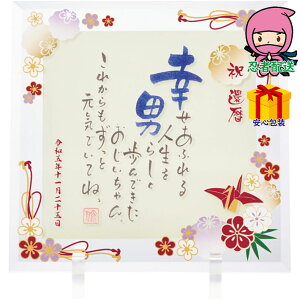 忍者配送
安心包装
祝還暦
幸せあふれる
男らしく
人生を
歩んできた
おじいちゃん、
これからもずっと
元気でいてね。
令和五年十一月二十三日